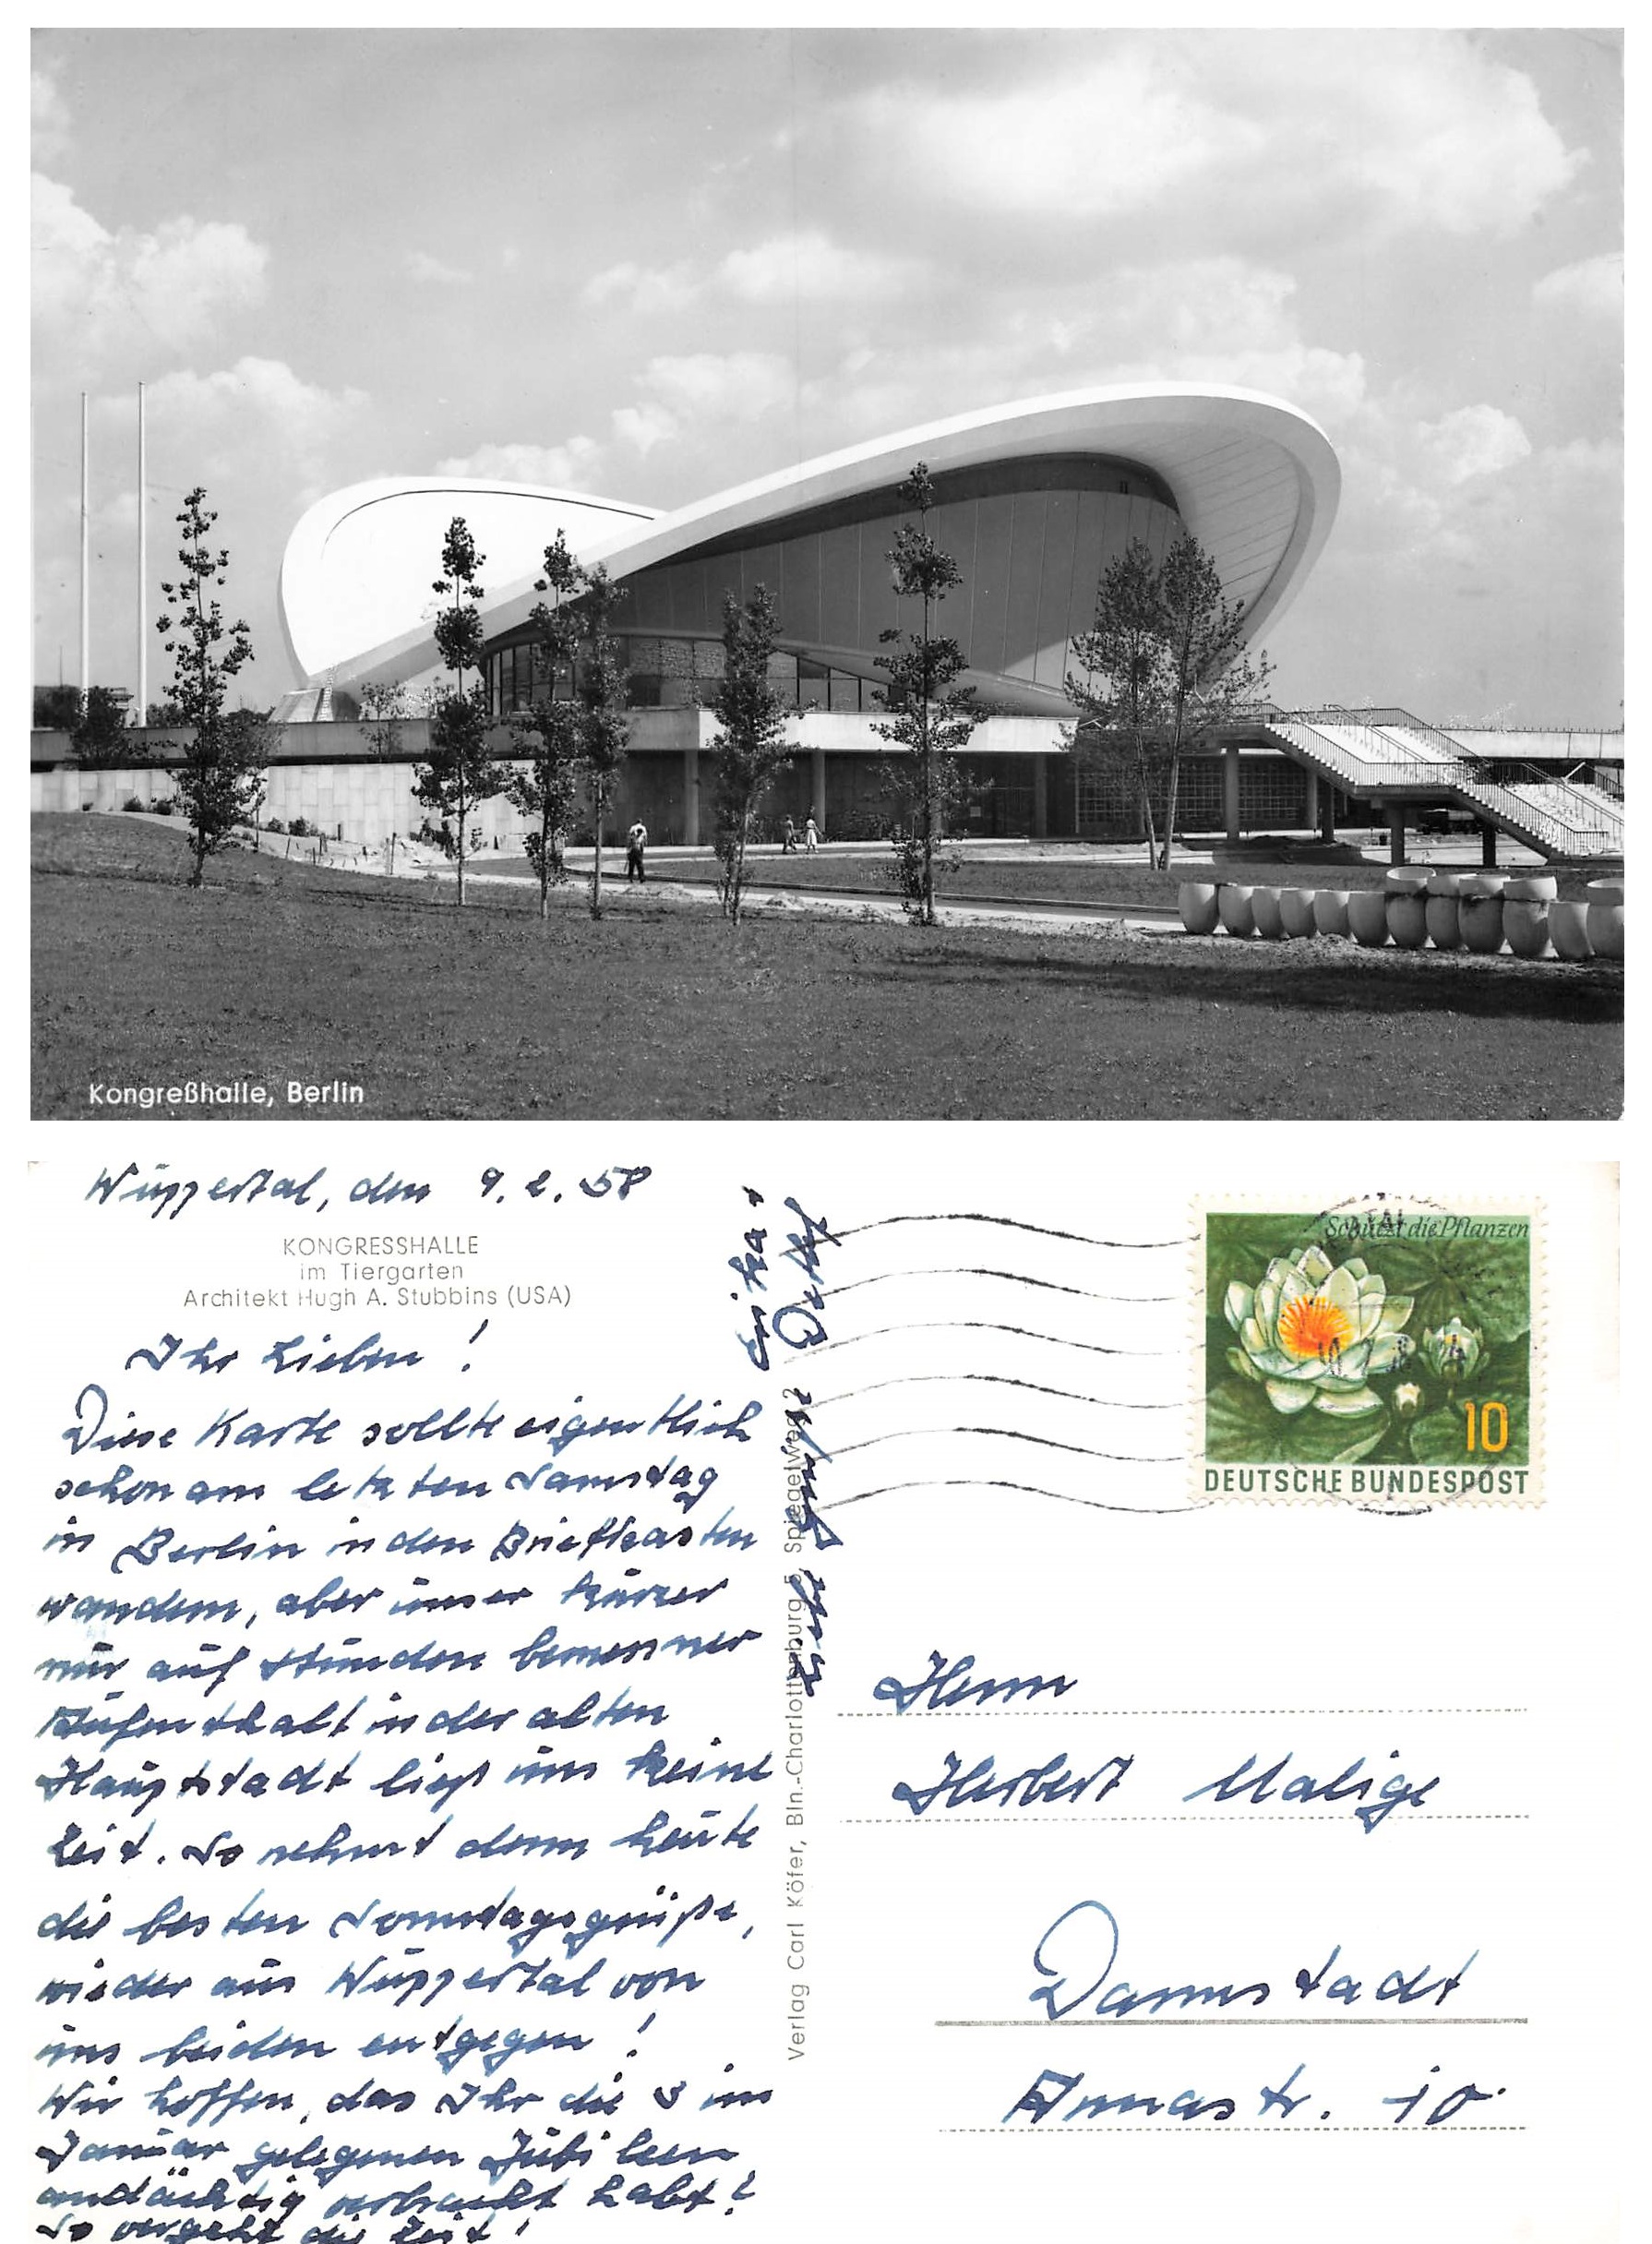 Kongreßhalle, Berlin
Wuppertal, den 9.2.58
KONGRESSHALLE
im Tiergarten
Architekt Hugh A. Stubbins (USA)
Ihr Lieben!
Diese Karte sollte eigentlich
schon am letzten Samstag
in Berlin in den Briefkasten
wandern, aber unser kurzer
nur auf Stunden bemessner
Aufenthalt in der alten
Hauptstadt ließ uns keine
Zeit. So nehmt denn heute
die besten Sonntagsgrüße,
wieder aus Wuppertal von
uns beiden entgegen!
Wir hoffen, das Ihr die 3 im
Januar gelegenen Jubileen
andächtig verbracht habt!
So vergeht die Zeit!
Verlag Carl Köfer, Bln.-Charlottenburg 5, Spiegelweg 2
Schützt die Pflanzen
10
DEUTSCHE BUNDESPOST
Herrn
Herbert Malige
Darmstadt
Annastr. 10